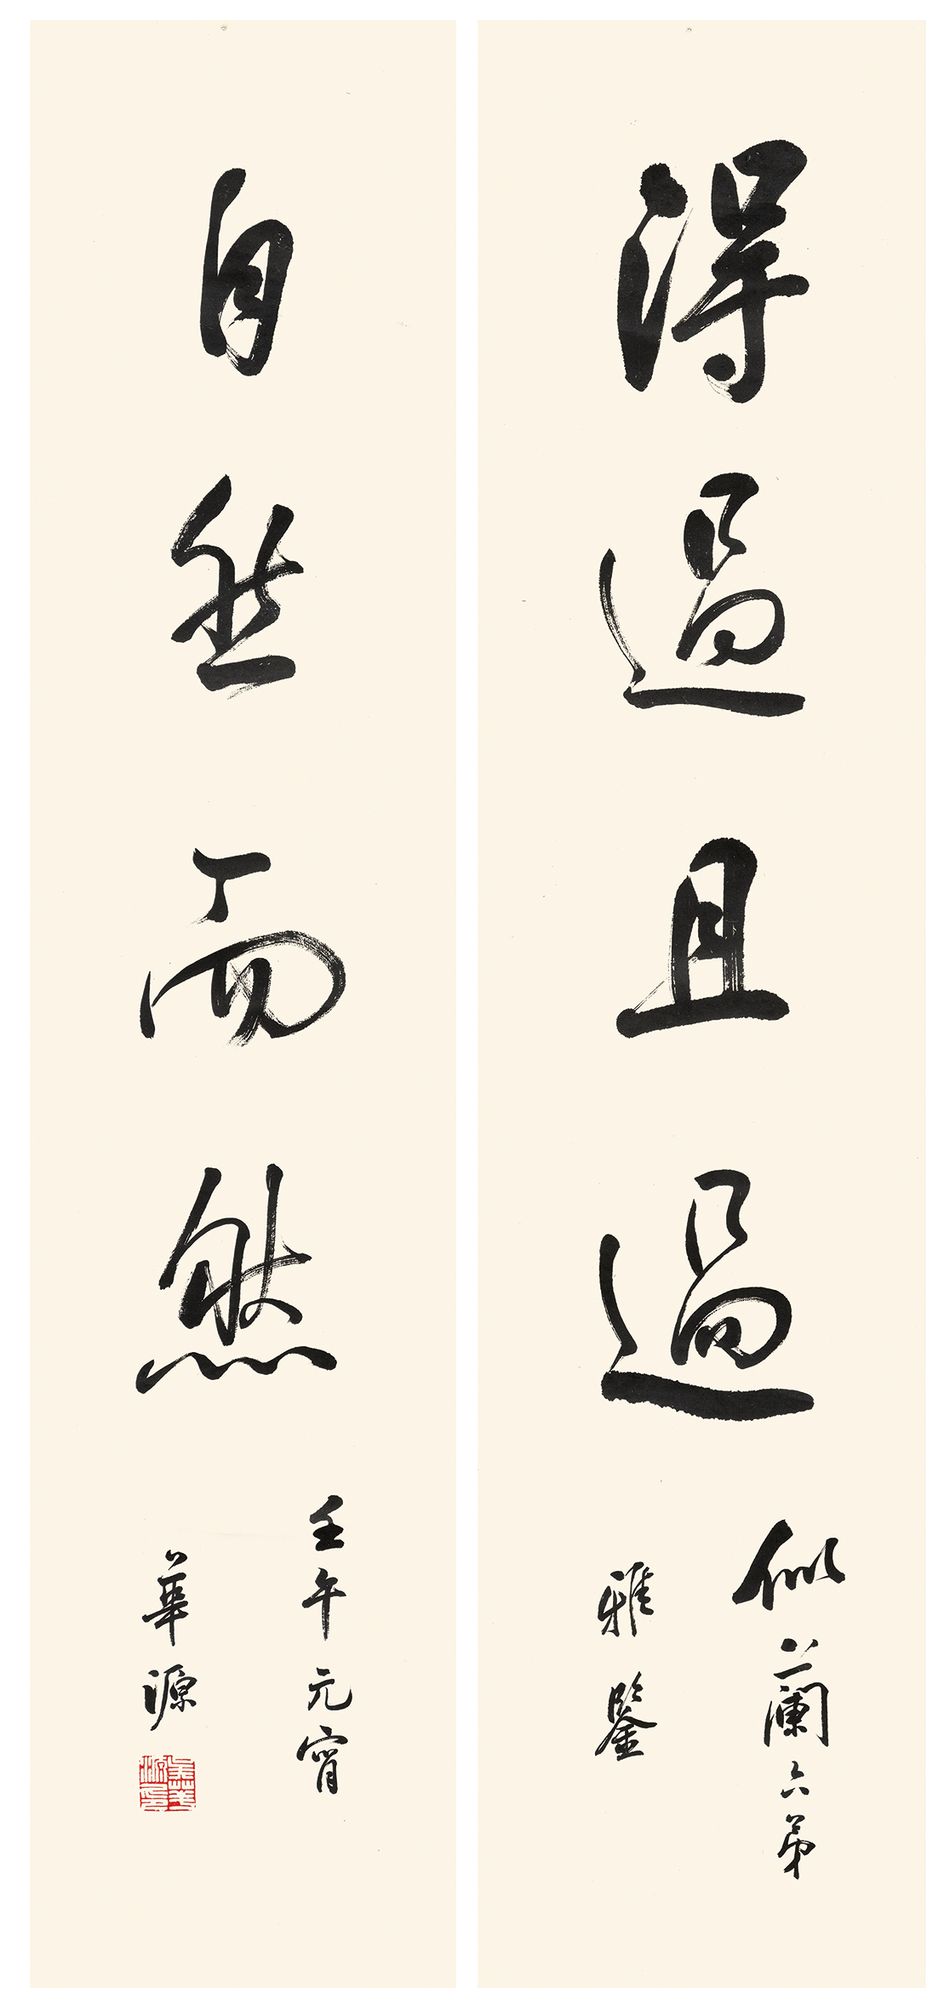 得過且過
似蘭六弟
雅鑒
自然而然
壬午元宵
華源